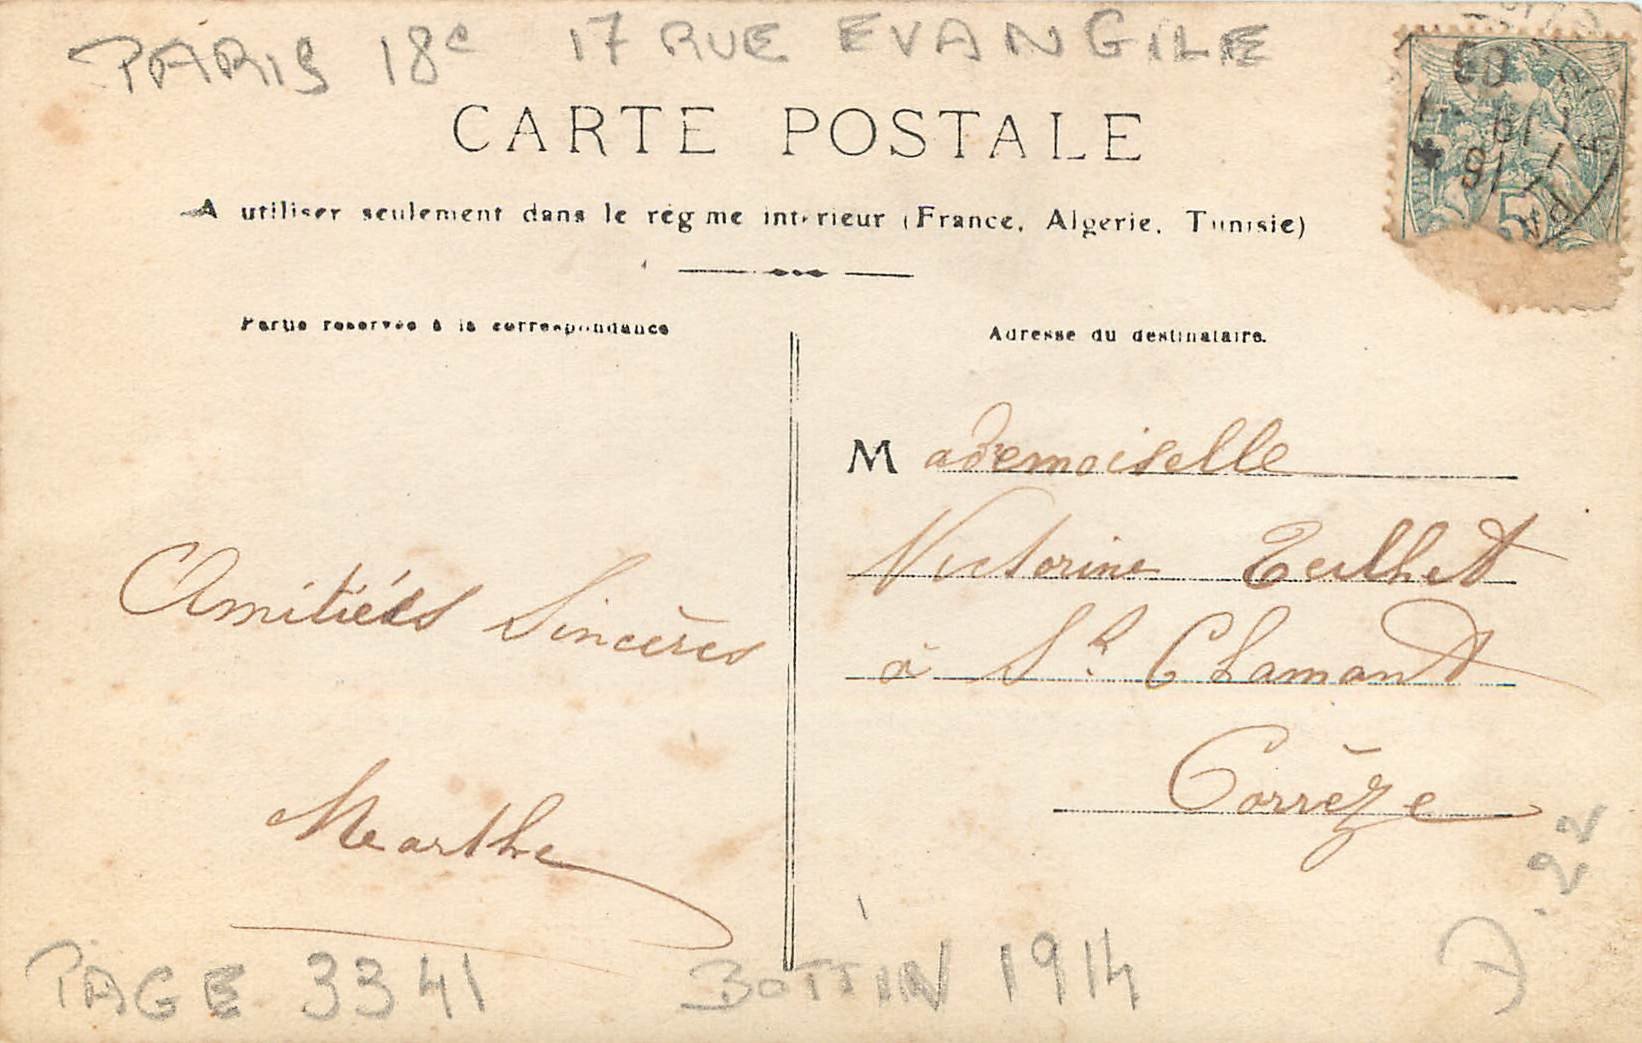 PARIS 18e 17 RUE EVANGILE
CARTE POSTALE
A utiliser seulement dans le régime intérieur (France, Algerie, Tunisie)
Partie reservée à la correspondance
Adresse du destinataire.
Mademoiselle
Victorine Teilhet
à St Chamant
Corrèze
Amitiées Sincères
Marthe
PAGE 3341 BOTTIN 1914